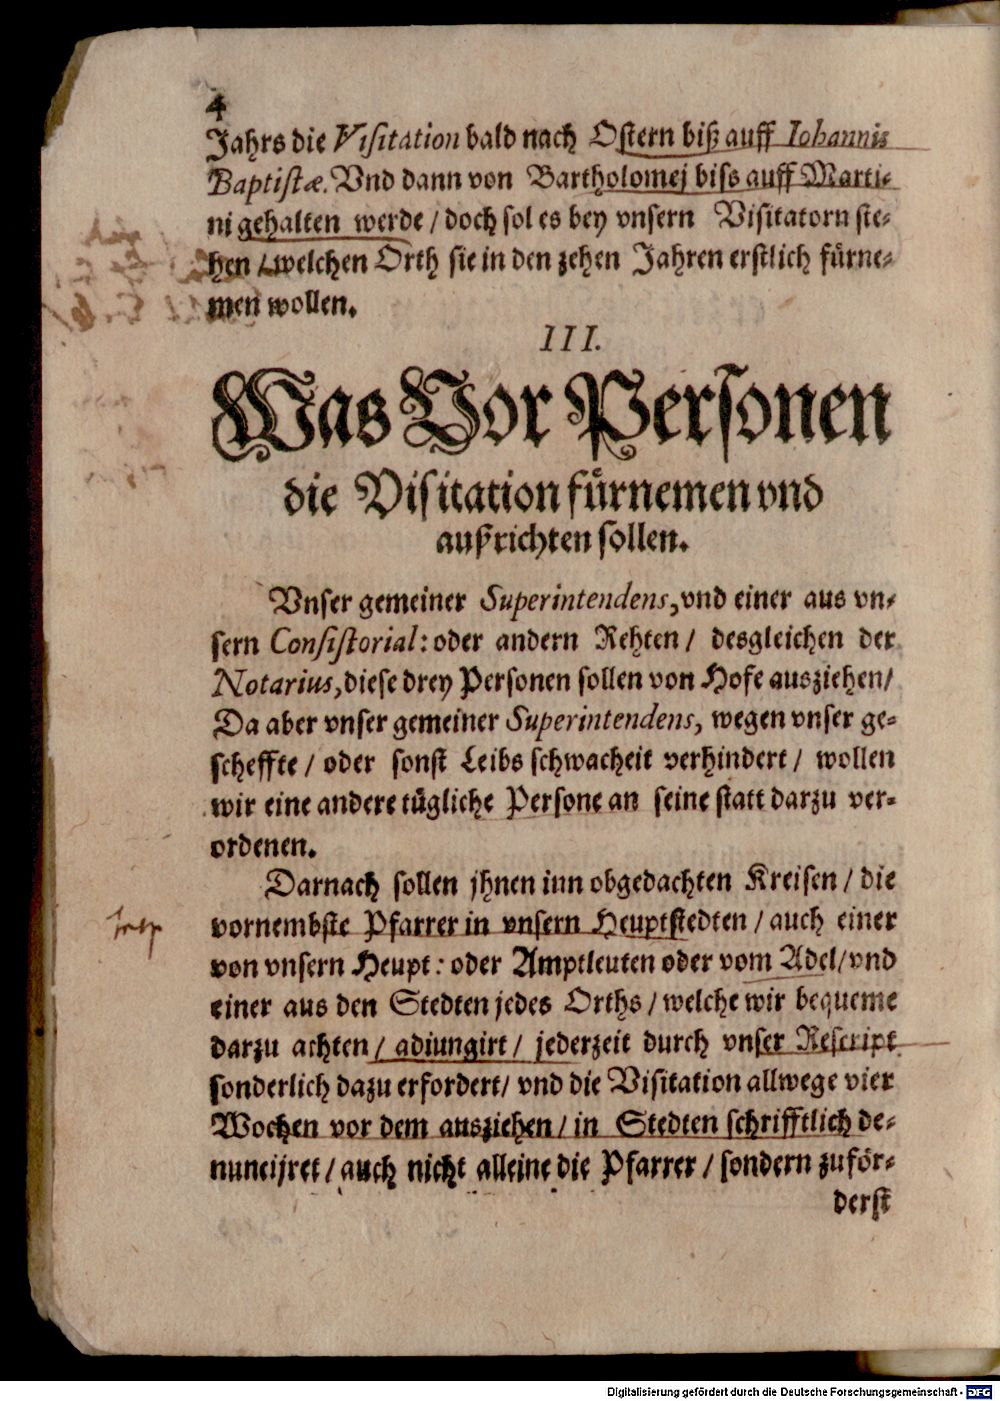 4
Jahrs die Visitation bald nach Ostern biß auff Iohannis
Baptistæ. Vnd dann von Bartholomej biss auff Marti-
ni gehalten werde / doch sol es bey vnsern Visitatorn ste-
hen / welchen Orth sie in den zehen Jahren erstlich fürne-
men wollen.
III.
Was Vor Personen
die Visitation fürnemen vnd
außrichten sollen.
Vnser gemeiner Superintendens, vnd einer aus vn-
sern Consistorial: oder andern Rehten / desgleichen der
Notarius, diese drey Personen sollen von Hofe ausziehen /
Da aber vnser gemeiner Superintendens, wegen vnser ge-
scheffte / oder sonst Leibs schwacheit verhindert / wollen
wir eine andere tügliche Persone an seine statt darzu ver-
ordenen.
Darnach sollen jhnen inn obgedachten Kreisen / die
vornembste Pfarrer in vnsern Heuptstedten / auch einer
von vnsern Heupt: oder Amptleuten oder vom Adel / vnd
einer aus den Stedten jedes Orths / welche wir bequeme
darzu achten / adiungirt / jederzeit durch vnser Rescript
sonderlich dazu erfordert / vnd die Visitation allwege vier
Wochen vor dem ausziehen / in Stedten schrifftlich de-
nuncijret / auch nicht alleine die Pfarrer / sondern zuför-
derst
Digitalisierung gefördert durch die Deutsche Forschungsgemeinschaft - DFG